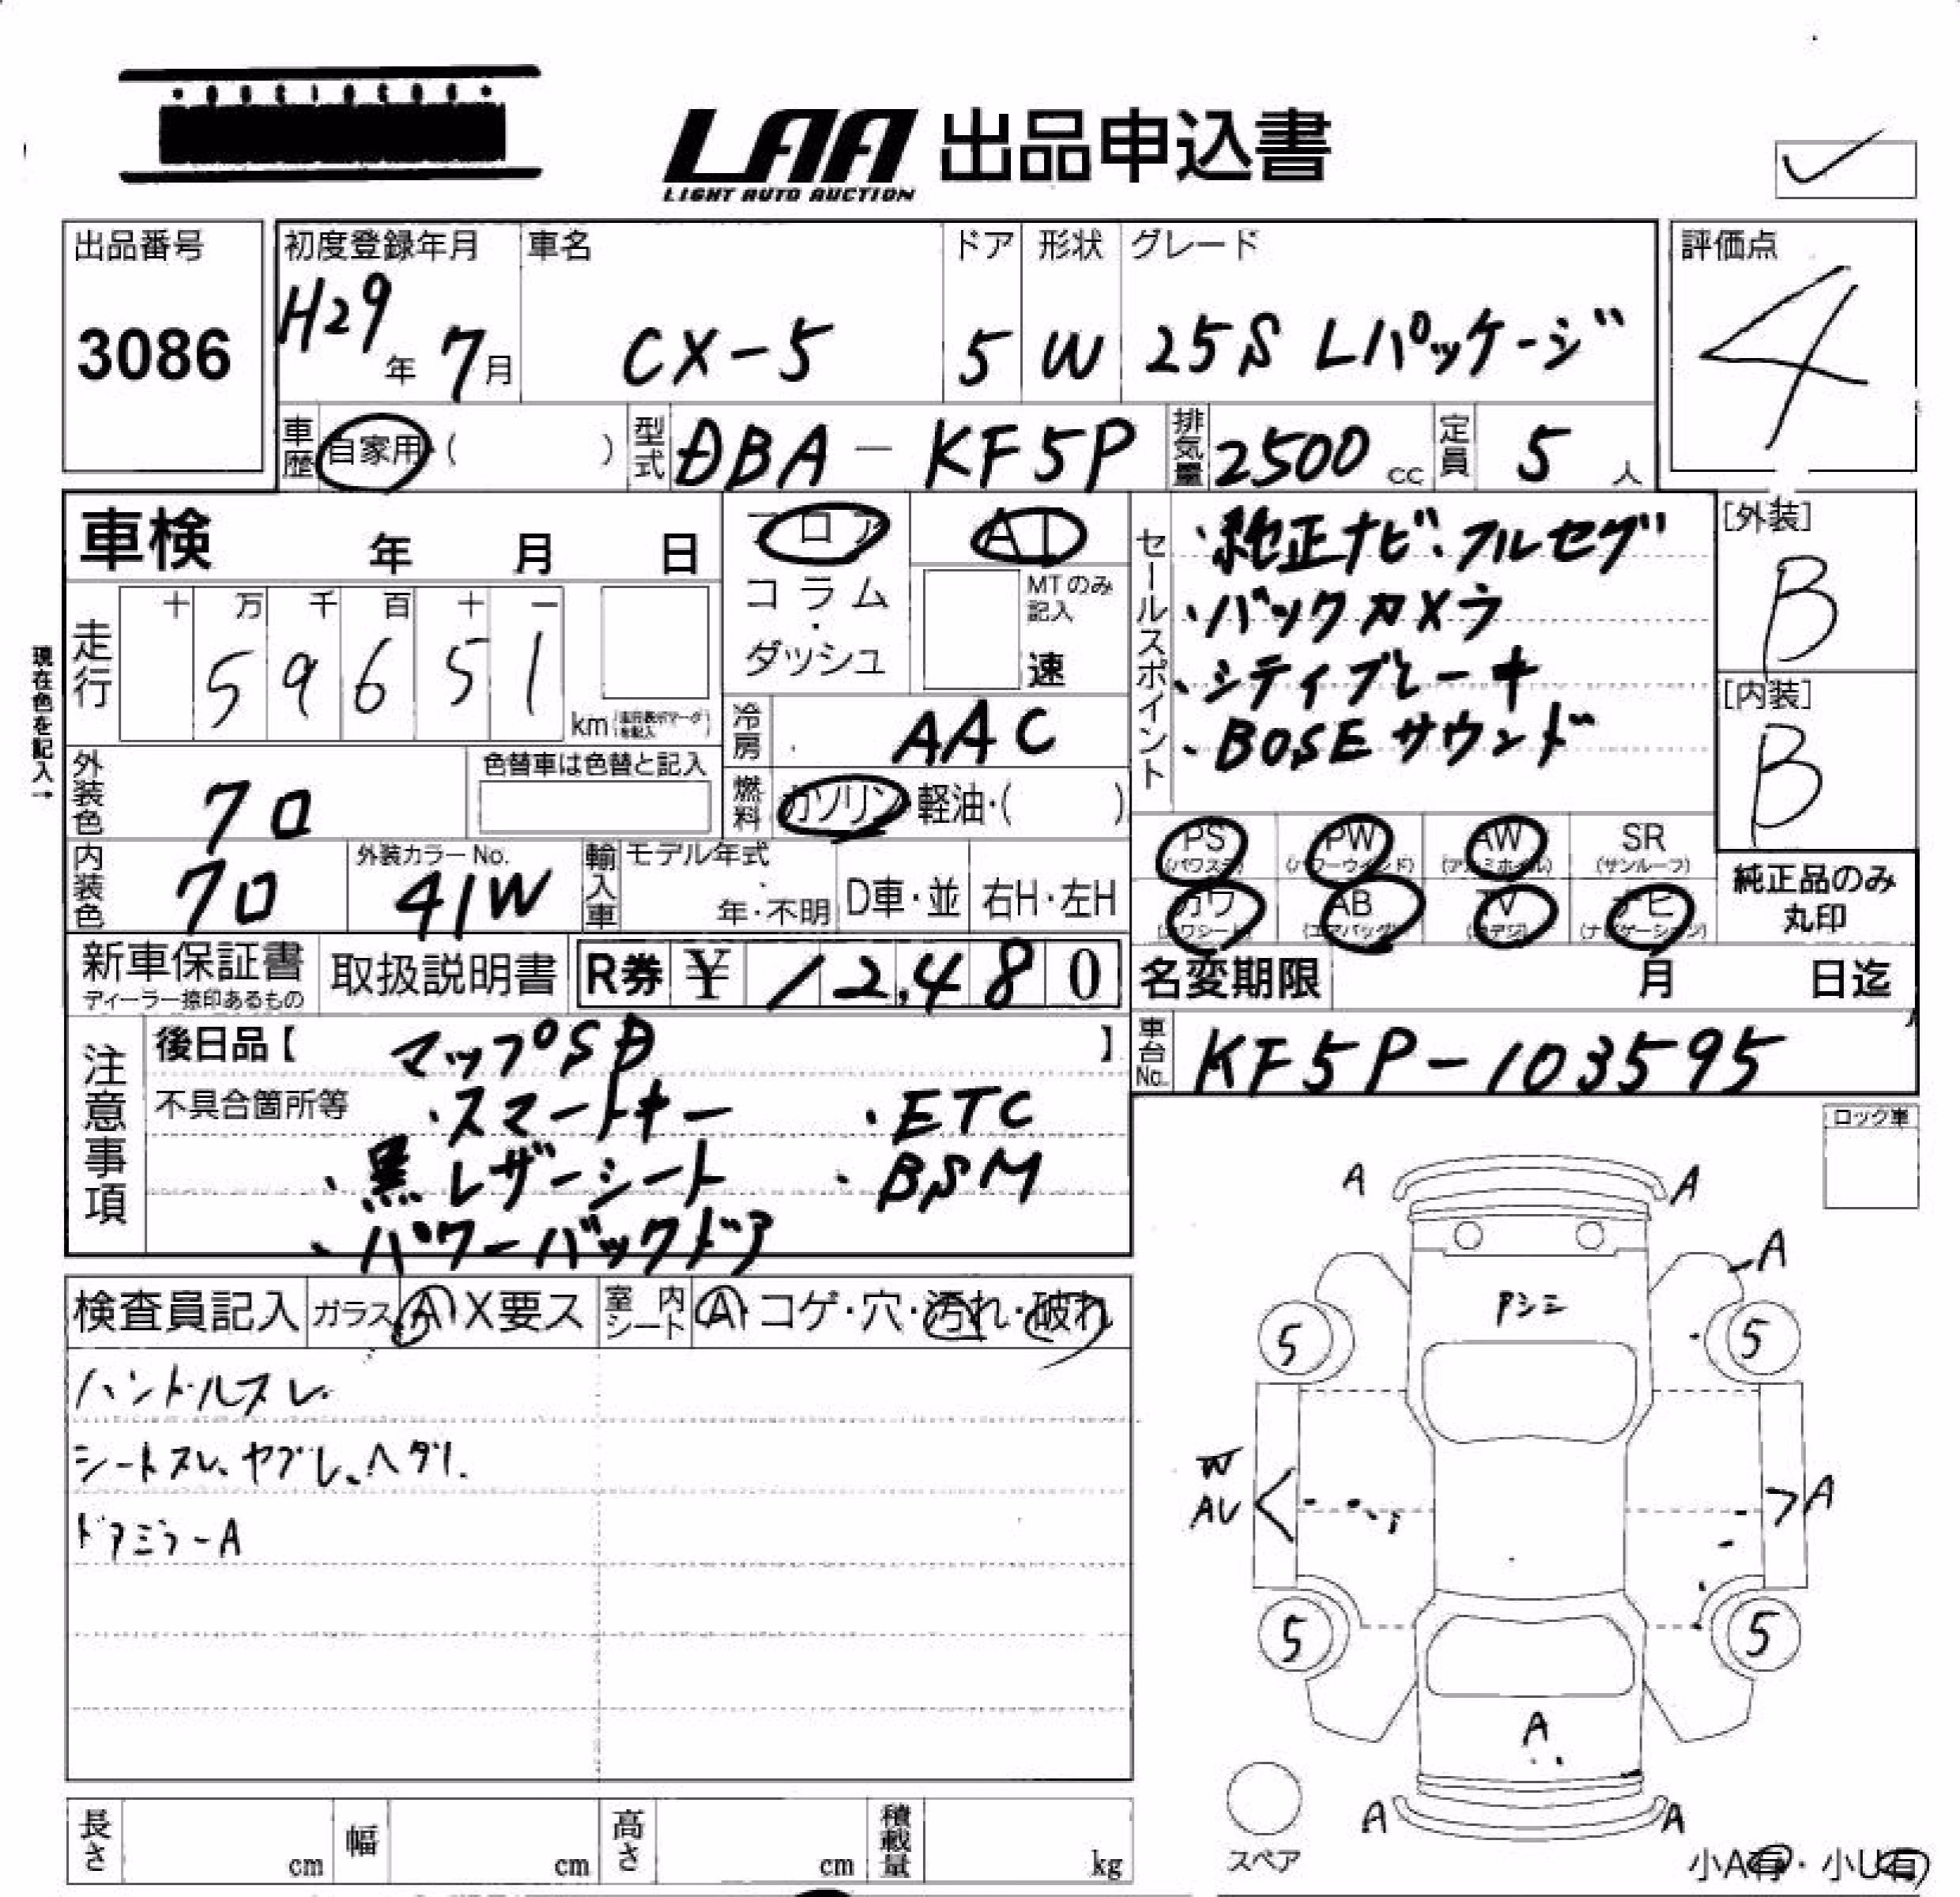 LAA 出品申込書
LIGHT AUTO AUCTION
出品番号 初度登録年月 車名 ドア 形状 グレード 評価点
3086 H29年 7月 CX-5 5 W 25S Lパッケージ 4
車歴 自家用・( ) 型式 DBA-KF5P 排気量 2500 cc 定員 5 人
車検 年 月 日 フロア AT
コラム・ダッシュ MTのみ記入 速
走行 十 万 千 百 十 一
5 9 6 5 1 km
現在色を記入→
冷房 AAC
外装色 クロ 色替車は色替と記入
燃料 ガソリン・軽油・( )
内装色 クロ 外装カラーNo. 41W 輸入車 モデル年式 年・不明 D車・並 右H・左H
セールスポイント
・純正ナビ・フルセグ
・バックカメラ
・シティブレーキ
・BOSEサウンド
[外装] B
[内装] B
PS (パワステ) PW (パワーウインド) AW (アルミホイル) SR (サンルーフ)
カワ (カワシート) AB (エアバッグ) TV (地デジ) ナビ (ナビゲーション)
純正品のみ丸印
新車保証書 ディーラー捺印あるもの 取扱説明書 R券 ¥ 12,480
名変期限 月 日迄
注意事項
後日品【 マップSD 】
不具合箇所等 ・スマートキー ・ETC
・黒レザーシート ・BSM
・パワーバックドア
車台No. KF5P-103595
ロック車
検査員記入 ガラス A・X要ス 室内シート A・コゲ・穴・汚れ・破れ
ハンドルスレ
シートスレ、ヤブレ、ヘタリ
ドアミラーA
A A
A
アシミ
5 5
W
AU A
5 5
A
A A
スペア
小A有・小U有
長さ cm 幅 cm 高さ cm 積載量 kg